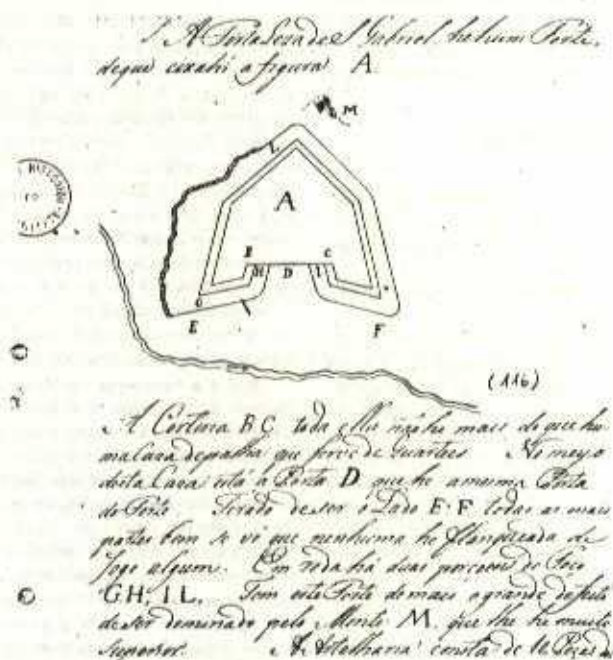 A Fortaleza de S. Gabriel he hum Forte,
de que aqui a figura A.
M
L
A
B C
H D I
G
E
F
(116)
A Cortina B C toda ella não he mais do que hu
ma Caza de palha que serve de quarteis No meyo
desta Caza está a Porta D que he a mesma Porta
do Forte. Tirado de ser o Lado E F todas as mais
partes bem se vê que nenhuma he flanqueada de
fogo algum. Em roda há duas porçoens de Foço
G H, I L, Tem este Forte de mais o grande defeito
de ser dominado pelo Monte M, que lhe he muito
superior. A Artelharia consta de 12 Peças de